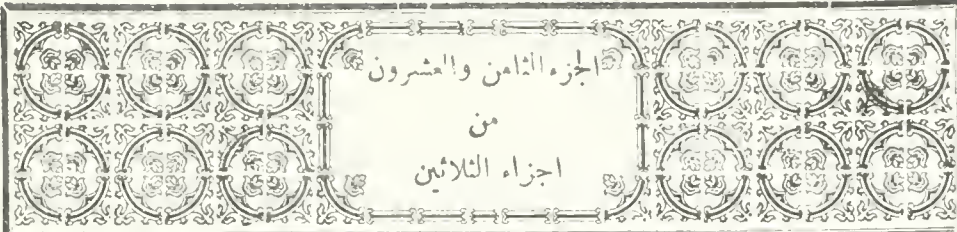 الجزء الثامن والعشرون
من
اجزاء الثلاثين